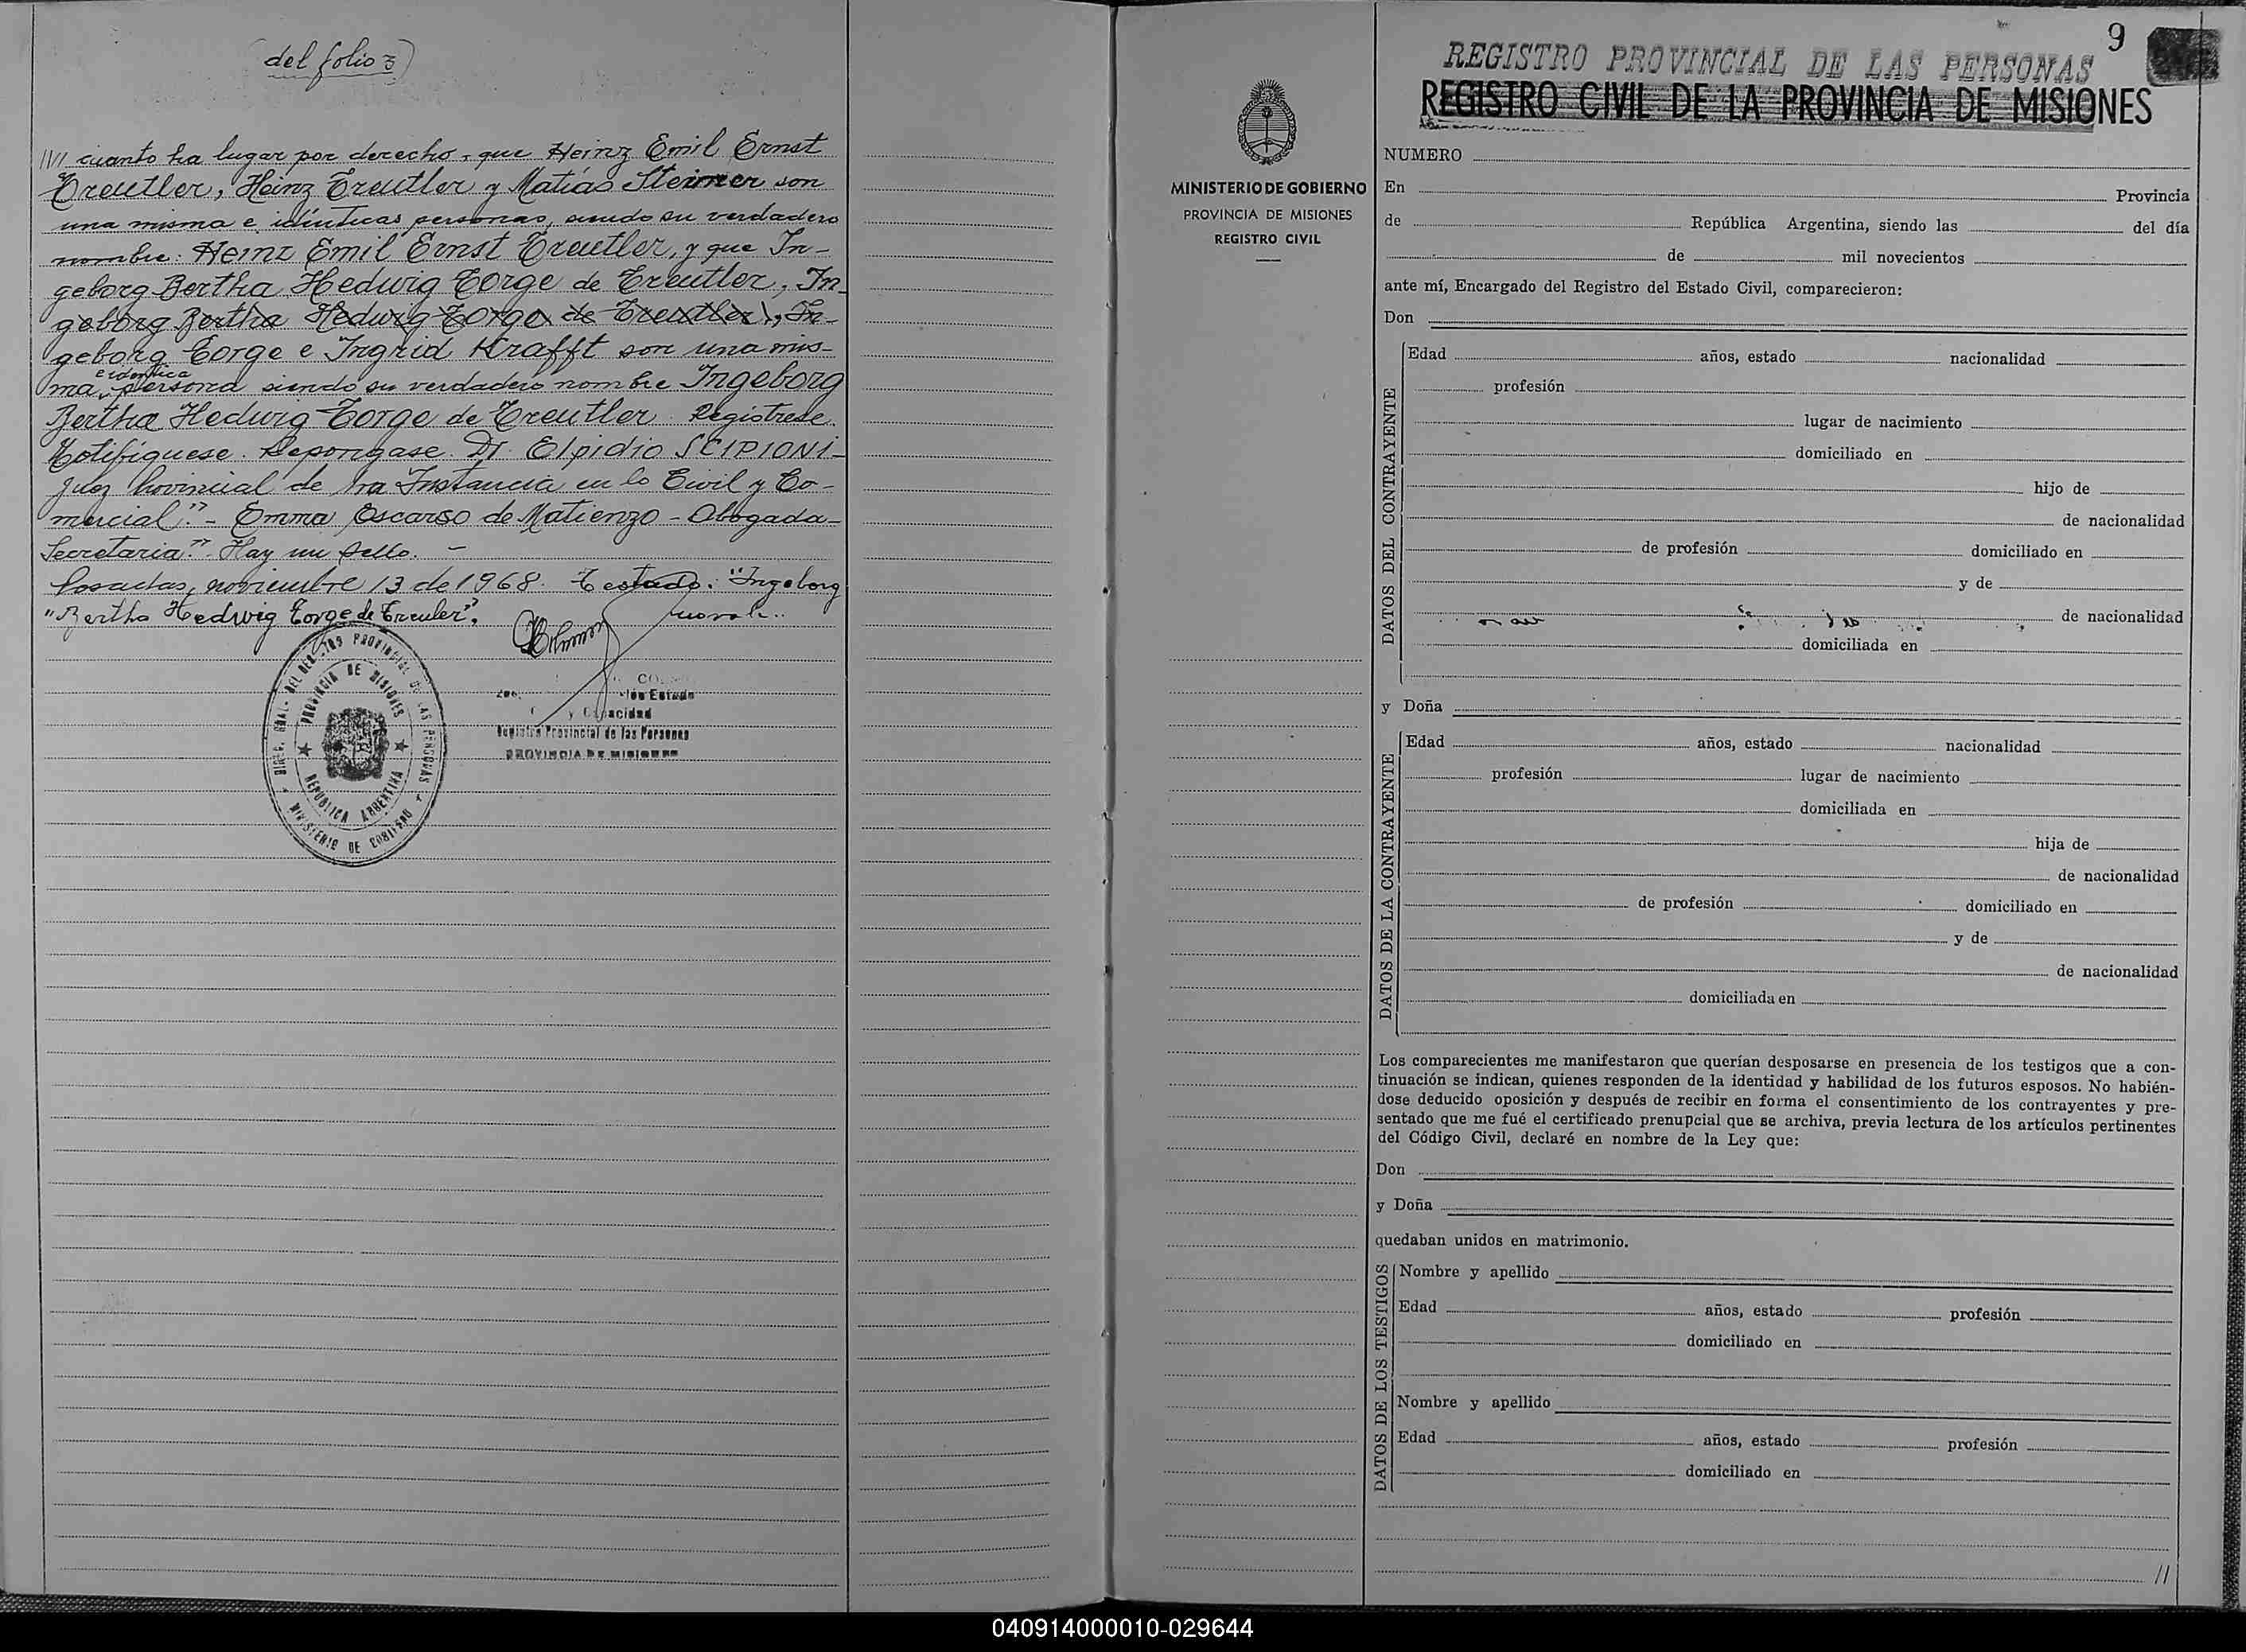 (del folio 3)
//// cuanto ha lugar por derecho, que Heinz Emil Ernst
Treutler, Heinz Treutler y Matías Steinner son
una misma e idénticas personas, siendo su verdadero
nombre: Heinz Emil Ernst Treutler, y que In-
geborg Bertha Hedwig Torge de Treutler, In-
geborg Bertha Hedwig Torge de Treutler, In-
geborg Torge e Ingrid Krafft son una mis-
ma e idéntica persona siendo su verdadero nombre Ingeborg
Bertha Hedwig Torge de Treutler. Regístrese.
Notifíquese. Repóngase. Dr. Elpidio SCIPIONI-
Juez Provincial de 1ra Instancia en lo Civil y Co-
mercial".- Emma Oscarso de Matienzo - Abogada-
Secretaria". Hay un sello. -
Posadas, noviembre 13 de 1968. Testado: "Ingeborg
"Bertha Hedwig Torge de Treuler".
PROVINCIA DE MISIONES
REPUBLICA ARGENTINA
MINISTERIO DE GOBIERNO
y Capacidad
Registro Provincial de las Personas
PROVINCIA DE MISIONES
9
REGISTRO PROVINCIAL DE LAS PERSONAS
REGISTRO CIVIL DE LA PROVINCIA DE MISIONES
MINISTERIO DE GOBIERNO
PROVINCIA DE MISIONES
REGISTRO CIVIL
NUMERO
En Provincia
de República Argentina, siendo las del día
de mil novecientos
ante mí, Encargado del Registro del Estado Civil, comparecieron:
Don
DATOS DEL CONTRAYENTE
Edad años, estado nacionalidad
profesión
lugar de nacimiento
domiciliado en
hijo de
de nacionalidad
de profesión domiciliado en
y de
de nacionalidad
domiciliada en
y Doña
DATOS DE LA CONTRAYENTE
Edad años, estado nacionalidad
profesión lugar de nacimiento
domiciliada en
hija de
de nacionalidad
de profesión domiciliado en
y de
de nacionalidad
domiciliada en
Los comparecientes me manifestaron que querían desposarse en presencia de los testigos que a con-
tinuación se indican, quienes responden de la identidad y habilidad de los futuros esposos. No habién-
dose deducido oposición y después de recibir en forma el consentimiento de los contrayentes y pre-
sentado que me fué el certificado prenupcial que se archiva, previa lectura de los artículos pertinentes
del Código Civil, declaré en nombre de la Ley que:
Don
y Doña
quedaban unidos en matrimonio.
DATOS DE LOS TESTIGOS
Nombre y apellido
Edad años, estado profesión
domiciliado en
Nombre y apellido
Edad años, estado profesión
domiciliado en
//
040914000010-029644